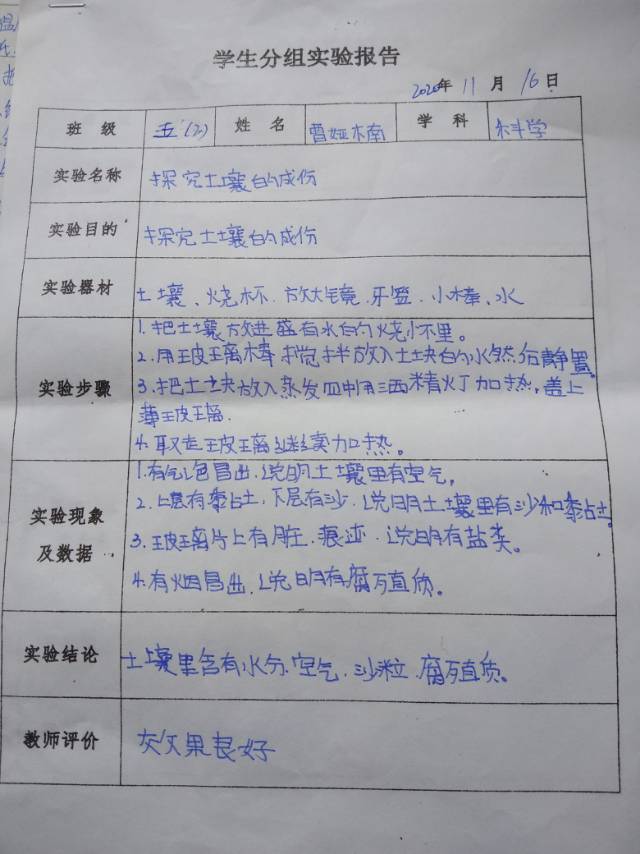 学生分组实验报告
2020年 11 月 16 日
班 级 五(2) 姓 名 曹娅楠 学 科 科学
实验名称 探究土壤的成份
实验目的 探究土壤的成份
实验器材 土壤、烧杯、放大镜、牙签、小棒、水
1.把土壤放进盛有水的烧杯里。
2.用玻璃棒搅拌放入土块的水然后静置。
实验步骤 3.把土块放入蒸发皿中用酒精灯加热,盖上
薄玻璃.
4.取走玻璃继续加热。
1.有气包冒出,说明土壤里有空气,
2.上层有黏土,下层有沙.说明土壤里有沙和黏土。
实验现象
及数据 3.玻璃片上有脏.痕迹.说明有盐类。
4.有烟冒出,说明有腐殖质。
实验结论 土壤里含有水分.空气.沙粒.腐殖质。
教师评价 效果良好